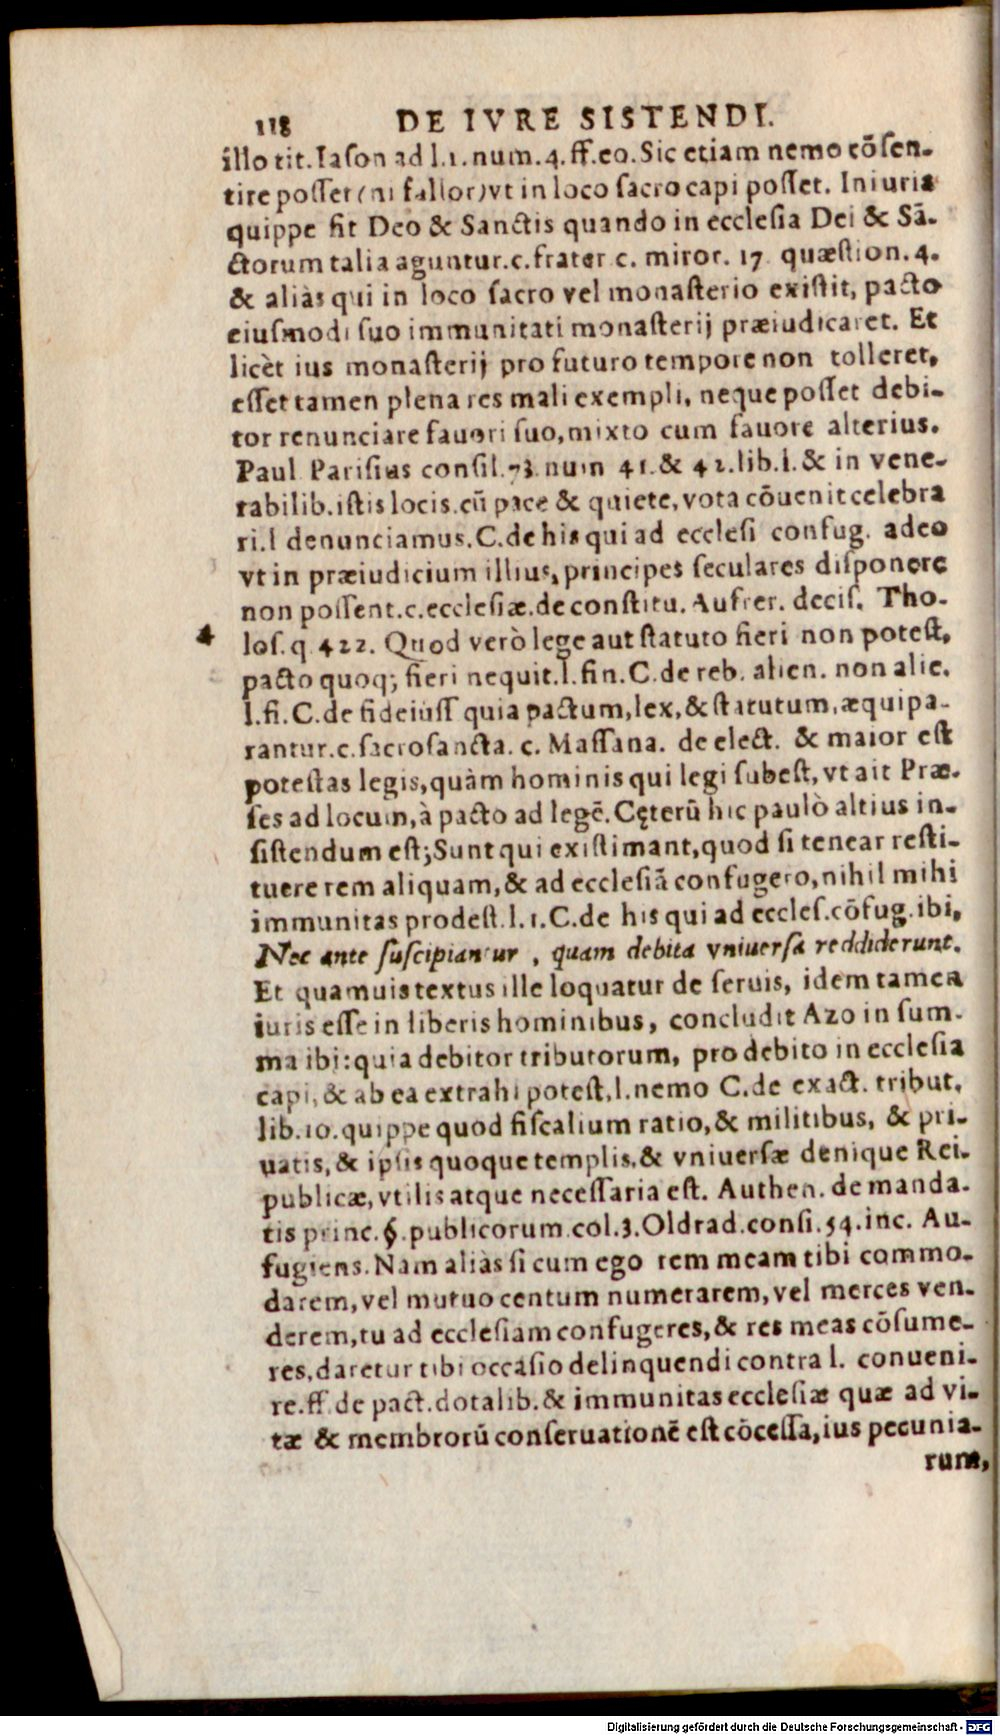 118 DE IVRE SISTENDI.
illo tit. Iason ad l.1. num. 4. ff. eo. Sic etiam nemo cõsen-
tire posset (ni fallor) vt in loco sacro capi posset. Iniuria
quippe fit Deo & Sanctis quando in ecclesia Dei & Sã-
ctorum talia aguntur. c. frater c. miror. 17 quæstion. 4.
& aliàs qui in loco sacro vel monasterio existit, pacto
eiusmodi suo immunitati monasterij præiudicaret. Et
licèt ius monasterij pro futuro tempore non tolleret,
esset tamen plena res mali exempli, neque posset debi-
tor renunciare fauori suo, mixto cum fauore alterius.
Paul Parisius consil. 73. num 41. & 42. lib. 1. & in vene-
rabilib. istis locis. cũ pace & quiete, vota cõuenit celebra
ri. l denunciamus. C. de his qui ad ecclesi confug. adeo
vt in præiudicium illius, principes seculares disponere
non possent. c. ecclesiæ. de constitu. Aufrer. decis. Tho-
4 los. q 422. Quod verò lege aut statuto fieri non potest,
pacto quoq; fieri nequit. l. fin. C. de reb. alien. non alie.
l. fi. C. de fideiuss quia pactum, lex, & statutum, æquipa-
rantur. c. sacrosancta. c. Massana. de elect. & maior est
potestas legis, quàm hominis qui legi subest, vt ait Præ-
ses ad locum, à pacto ad legẽ. Cęterũ hic paulò altius in-
sistendum est; Sunt qui existimant, quod si tenear resti-
tuere rem aliquam, & ad ecclesiã confugero, nihil mihi
immunitas prodest. l. 1. C. de his qui ad eccles. cõfug. ibi,
Nec ante suscipiantur, quam debita vniuersa reddiderunt.
Et quamuis textus ille loquatur de seruis, idem tamen
iuris esse in liberis hominibus, concludit Azo in sum-
ma ibi: quia debitor tributorum, pro debito in ecclesia
capi, & ab ea extrahi potest, l. nemo C. de exact. tribut,
lib. 10. quippe quod fiscalium ratio, & militibus, & pri-
uatis, & ipsis quoque templis, & vniuersæ denique Rei-
publicæ, vtilis atque necessaria est. Authen. de manda-
tis princ. §. publicorum col. 3. Oldrad. consi. 54. inc. Au-
fugiens. Nam aliàs si cum ego rem meam tibi commo-
darem, vel mutuo centum numerarem, vel merces ven-
derem, tu ad ecclesiam confugeres, & res meas cõsume-
res, daretur tibi occasio delinquendi contra l. conueni-
re. ff. de pact. dotalib. & immunitas ecclesiæ quæ ad vi-
tæ & membrorũ conseruationẽ est cõcessa, ius pecunia-
rum,
Digitalisierung gefördert durch die Deutsche Forschungsgemeinschaft - DFG